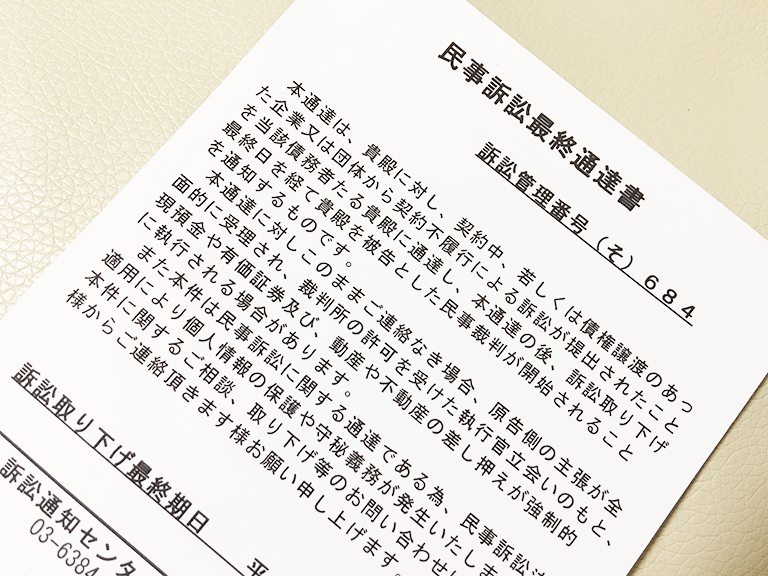 民事訴訟最終通達書
訴訟管理番号（そ）６８４
本通達は、貴殿に対し、契約中、若しくは債権譲渡のあっ
た企業又は団体から契約不履行による訴訟が提出されたこと
を当該債務者たる貴殿に通達し、本通達の後、訴訟取り下げ
最終日を経て貴殿を被告とした民事裁判が開始されること
を通知するものです。
本通達に対しこのままご連絡なき場合、原告側の主張が全
面的に受理され、裁判所の許可を受けた執行官立会いのもと、
現預金や有価証券及び、動産や不動産の差し押えが強制的
に執行される場合があります。
また本件は民事訴訟に関する通達である為、民事訴訟法
適用により個人情報の保護や守秘義務が発生いたしま
本件に関するご相談、取り下げ等のお問い合わせに
様からご連絡頂きます様お願い申し上げます。
訴訟取り下げ最終期日 平
訴訟通知センタ
03-6384